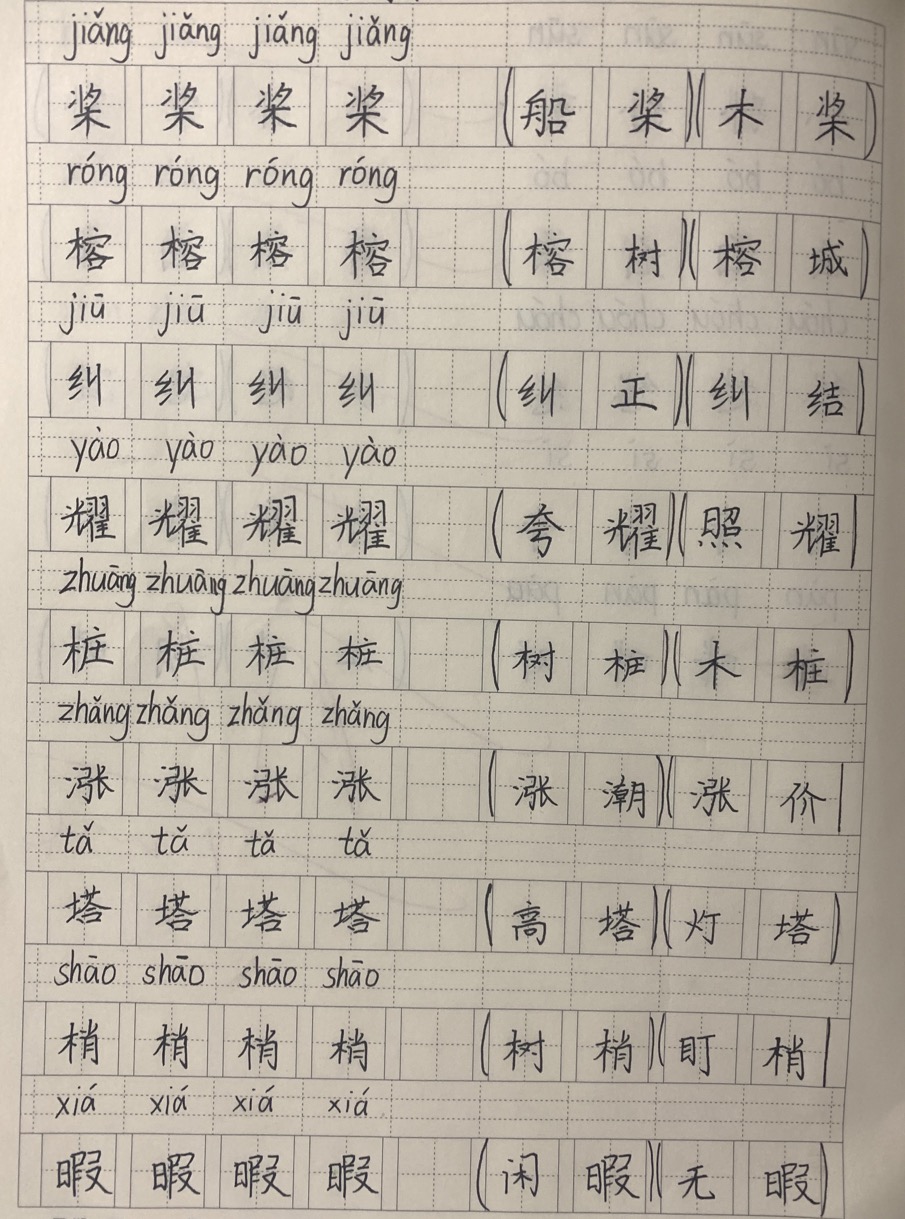 jiǎng jiǎng jiǎng jiǎng
桨 桨 桨 桨 (船 桨)(木 桨)
róng róng róng róng
榕 榕 榕 榕 (榕 树)(榕 城)
jiū jiū jiū jiū
纠 纠 纠 纠 (纠 正)(纠 结)
yào yào yào yào
耀 耀 耀 耀 (夸 耀)(照 耀)
zhuāng zhuāng zhuāng zhuāng
桩 桩 桩 桩 (树 桩)(木 桩)
zhǎng zhǎng zhǎng zhǎng
涨 涨 涨 涨 (涨 潮)(涨 价)
tǎ tǎ tǎ tǎ
塔 塔 塔 塔 (高 塔)(灯 塔)
shāo shāo shāo shāo
梢 梢 梢 梢 (树 梢)(盯 梢)
xiá xiá xiá xiá
暇 暇 暇 暇 (闲 暇)(无 暇)